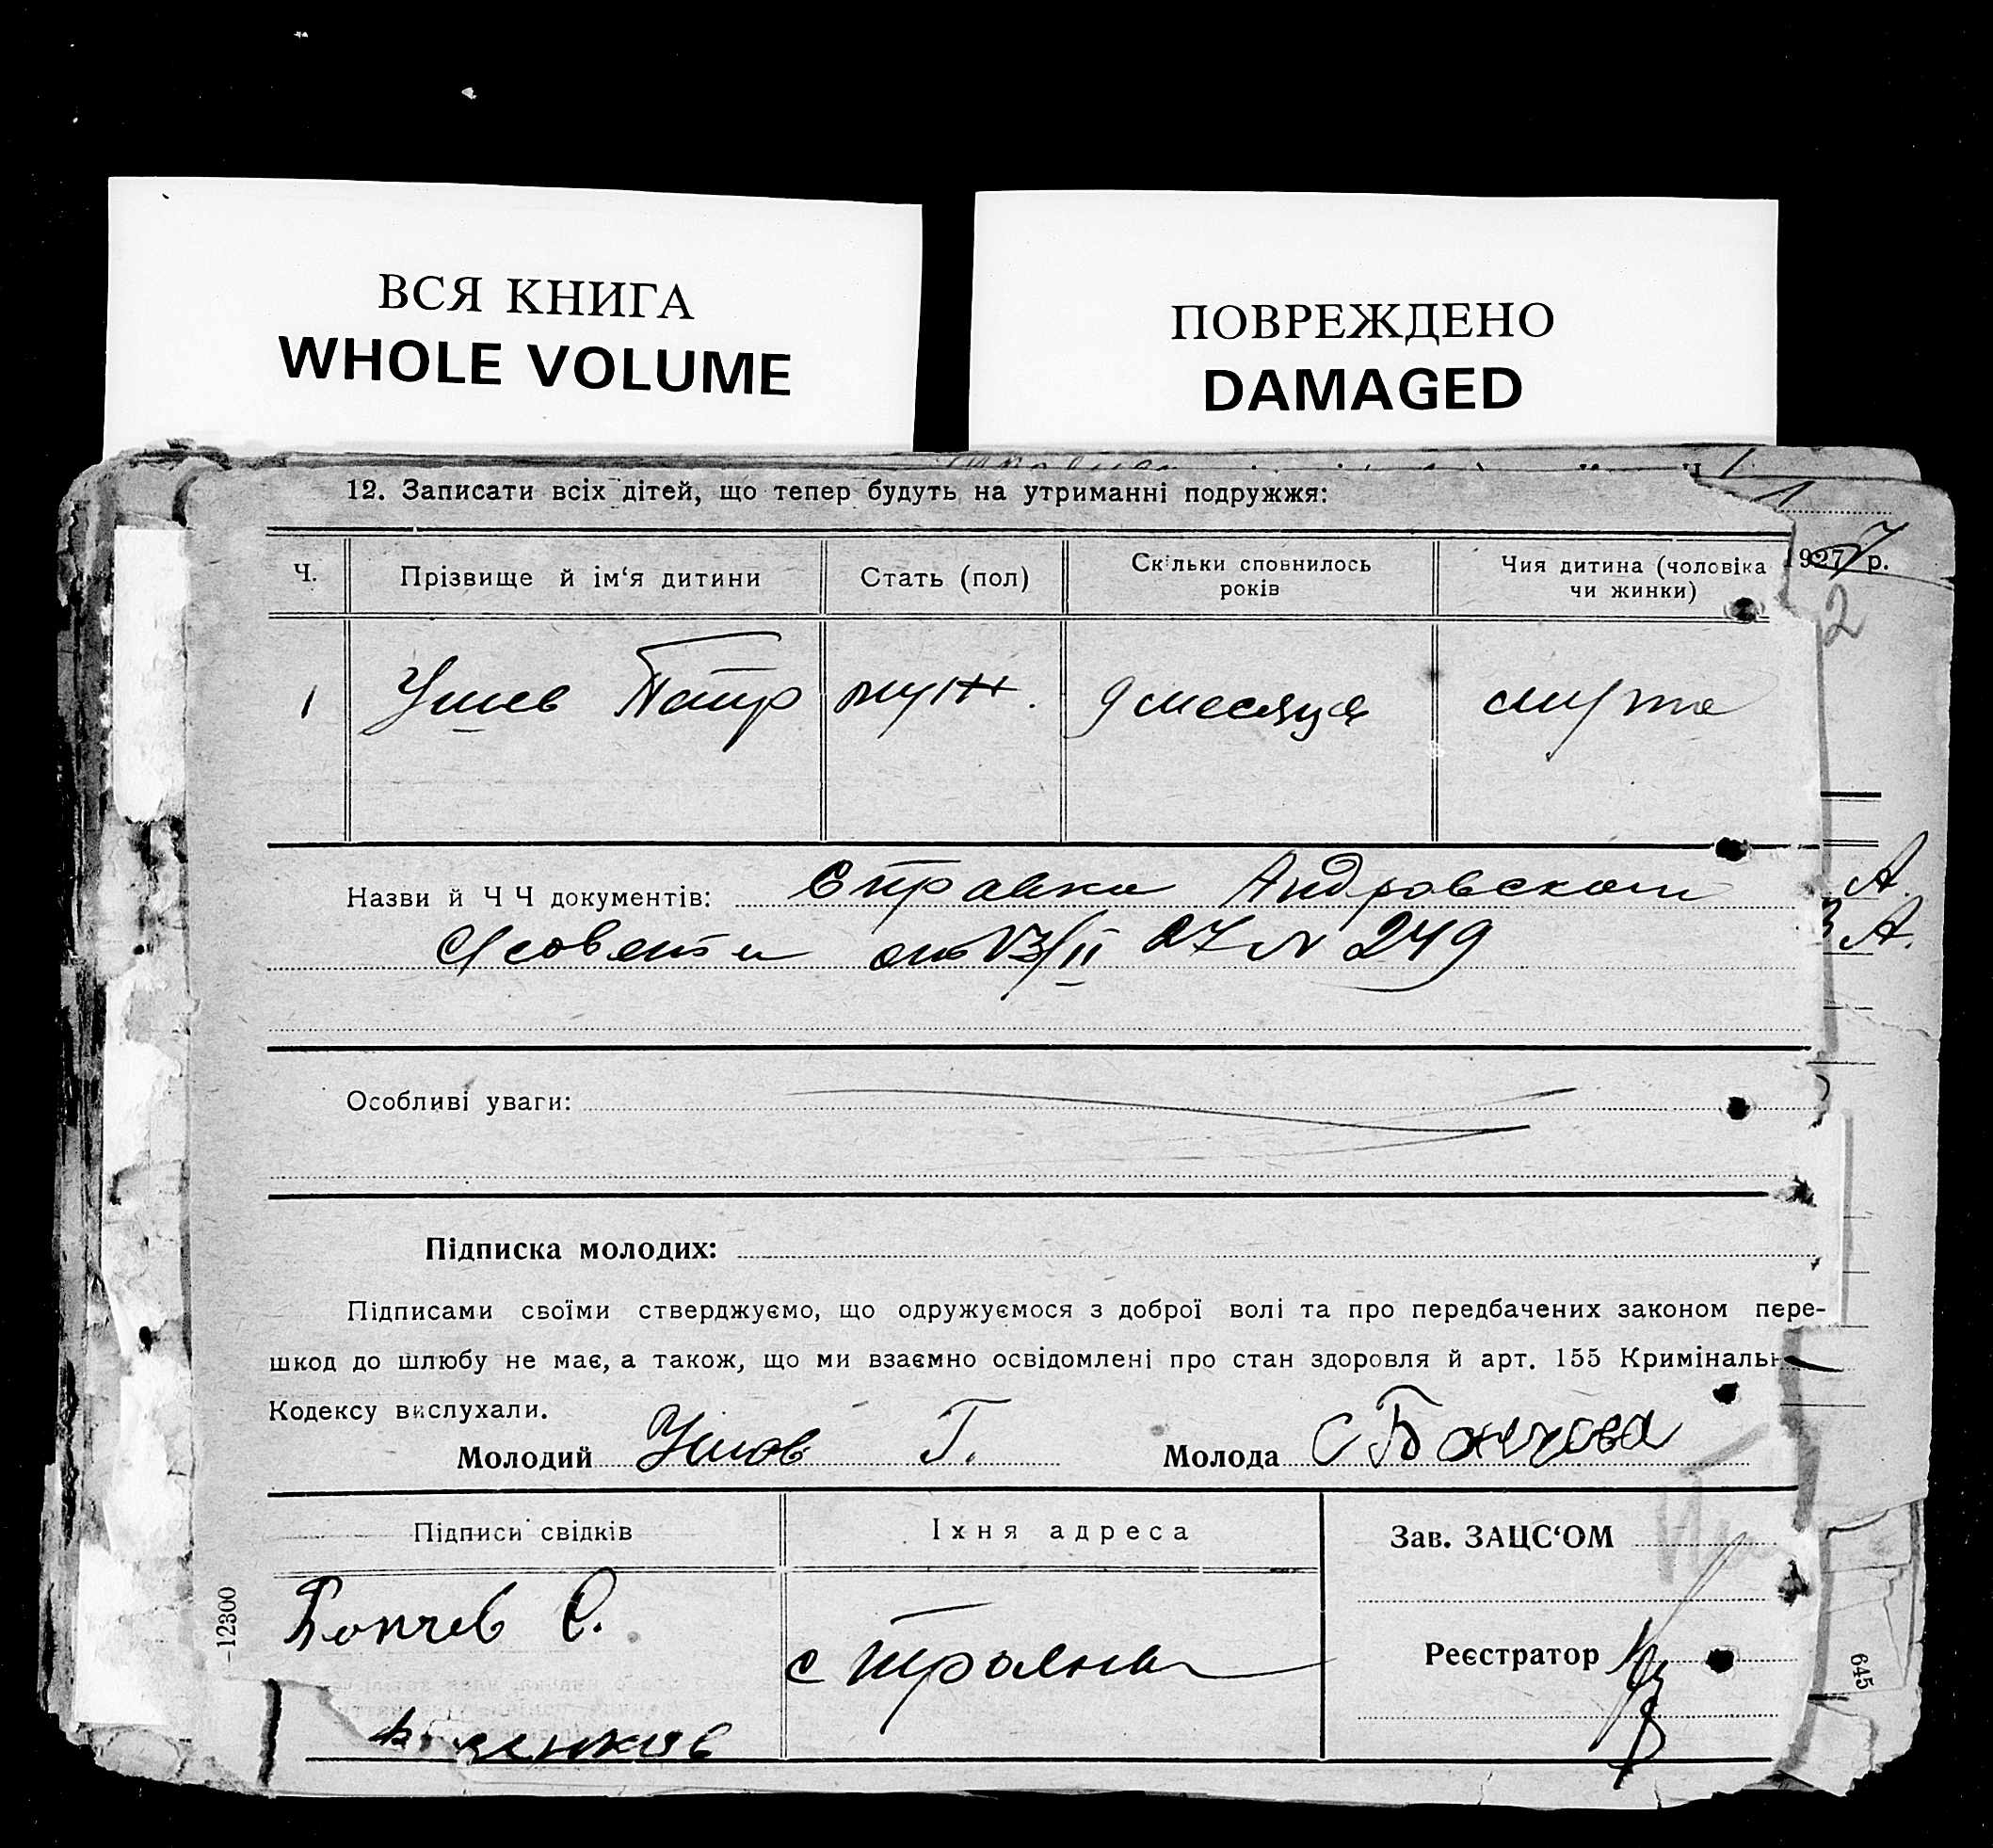 ВСЯ КНИГА
WHOLE VOLUME
ПОВРЕЖДЕНО
DAMAGED
12. Записати всіх дітей, що тепер будуть на утриманні подружжя:
Ч.
Прізвище й ім‘я дитини
Стать (пол)
Скільки сповнилось
років
Чия дитина (чоловіка
чи жинки)
1927 р.
2
1
Ушев Петр
муж.
9 месяця
мужа
Назви й Ч Ч документів: Справка Андровскаго
А.
А.
С/совета от 13/II 27 N 249
Особливі уваги:
Підписка молодих:
Підписами своїми стверджуємо, що одружуємося з доброї волі та про передбачених законом пере-
шкод до шлюбу не має, а також, що ми взаємно освідомлені про стан здоровля й арт. 155 Криміналь
Кодексу вислухали.
Молодий Ушев Г.
Молода С Бончева
Підписи свідків
Їхня адреса
Зав. ЗАЦС‘ОМ
Бончев С.
с Трояны
Реєстратор
—12300
645